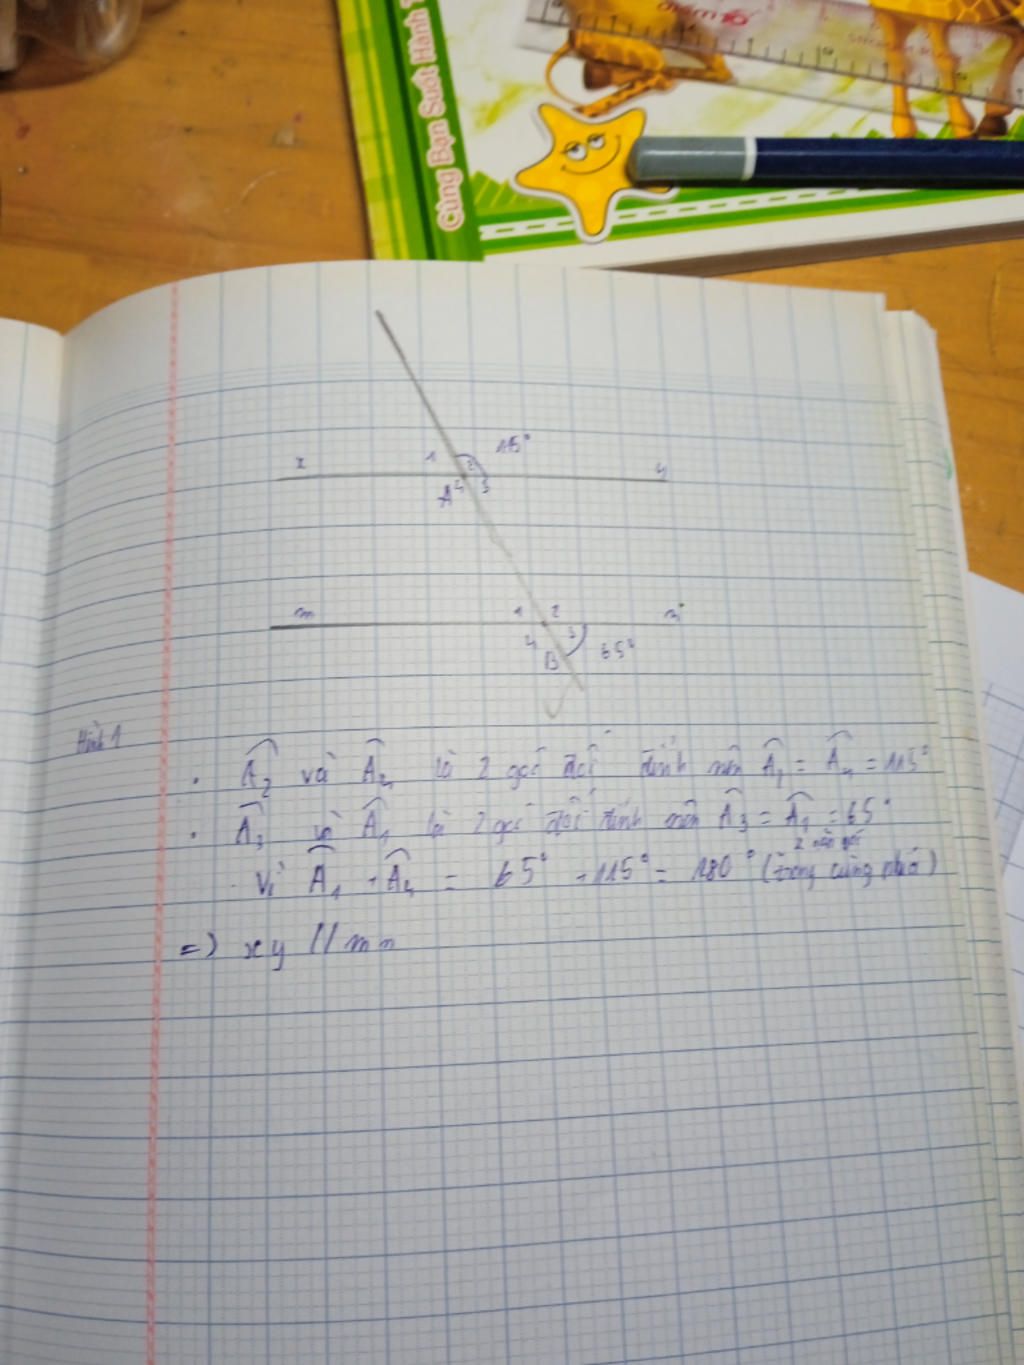 Cùng Bạn Suốt Hành T
điểm 10
115°
x 1 2 y
A 4 3
m 1 2 n
4 3
B 65°
Hình 1
. A₂ và A₄ là 2 góc đối đỉnh nên A₁ = A₄ = 115°
. A₃ và A₁ là 2 góc đối đỉnh nên A₃ = A₁ = 65°
2
Vì A₁ + A₄ = 65° + 115° = 180° (trong cùng phía)
=> xy // mn